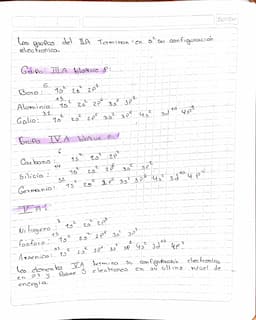 Los grupos del IIA Terminan en s² su configuración
electronica.
Grupo IIIA bloque p:
Boro: ⁵ 1s² 2s² 2p¹
Aluminio: ¹³ 1s² 2s² 2p⁶ 3s² 3p¹
Galio: ³¹ 1s² 2s² 2p⁶ 3s² 3p⁶ 4s² 3d¹⁰ 4p¹
Grupo IVA bloque p
Carbono: ⁶ 1s² 2s² 2p²
Silicio: ¹⁴ 1s² 2s² 2p⁶ 3s² 3p²
Germanio: ³² 1s² 2s² 2p⁶ 3s² 3p⁶ 4s² 3d¹⁰ 4p²
Nitrogeno: ⁷ 1s² 2s² 2p³
Fosforo: ¹⁵ 1s² 2s² 2p⁶ 3s² 3p³
Arsenico: ³³ 1s² 2s² 2p⁶ 3s² 3p⁶ 4s² 3d¹⁰ 4p³
Los elementos VA termina su configuración electronica
en p3 y 5 electrones en su último nivel de
energía.